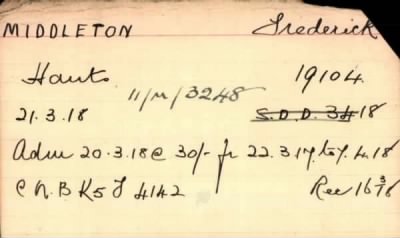 MIDDLETON Frederick
Hants 19104
11/M/3248
21.3.18 S.D.D. 34 18
Adm 20.3.18 @ 30/- fr 22.3.17 to 4.18
C N.B K5 J 4142 Rec 16/3/18